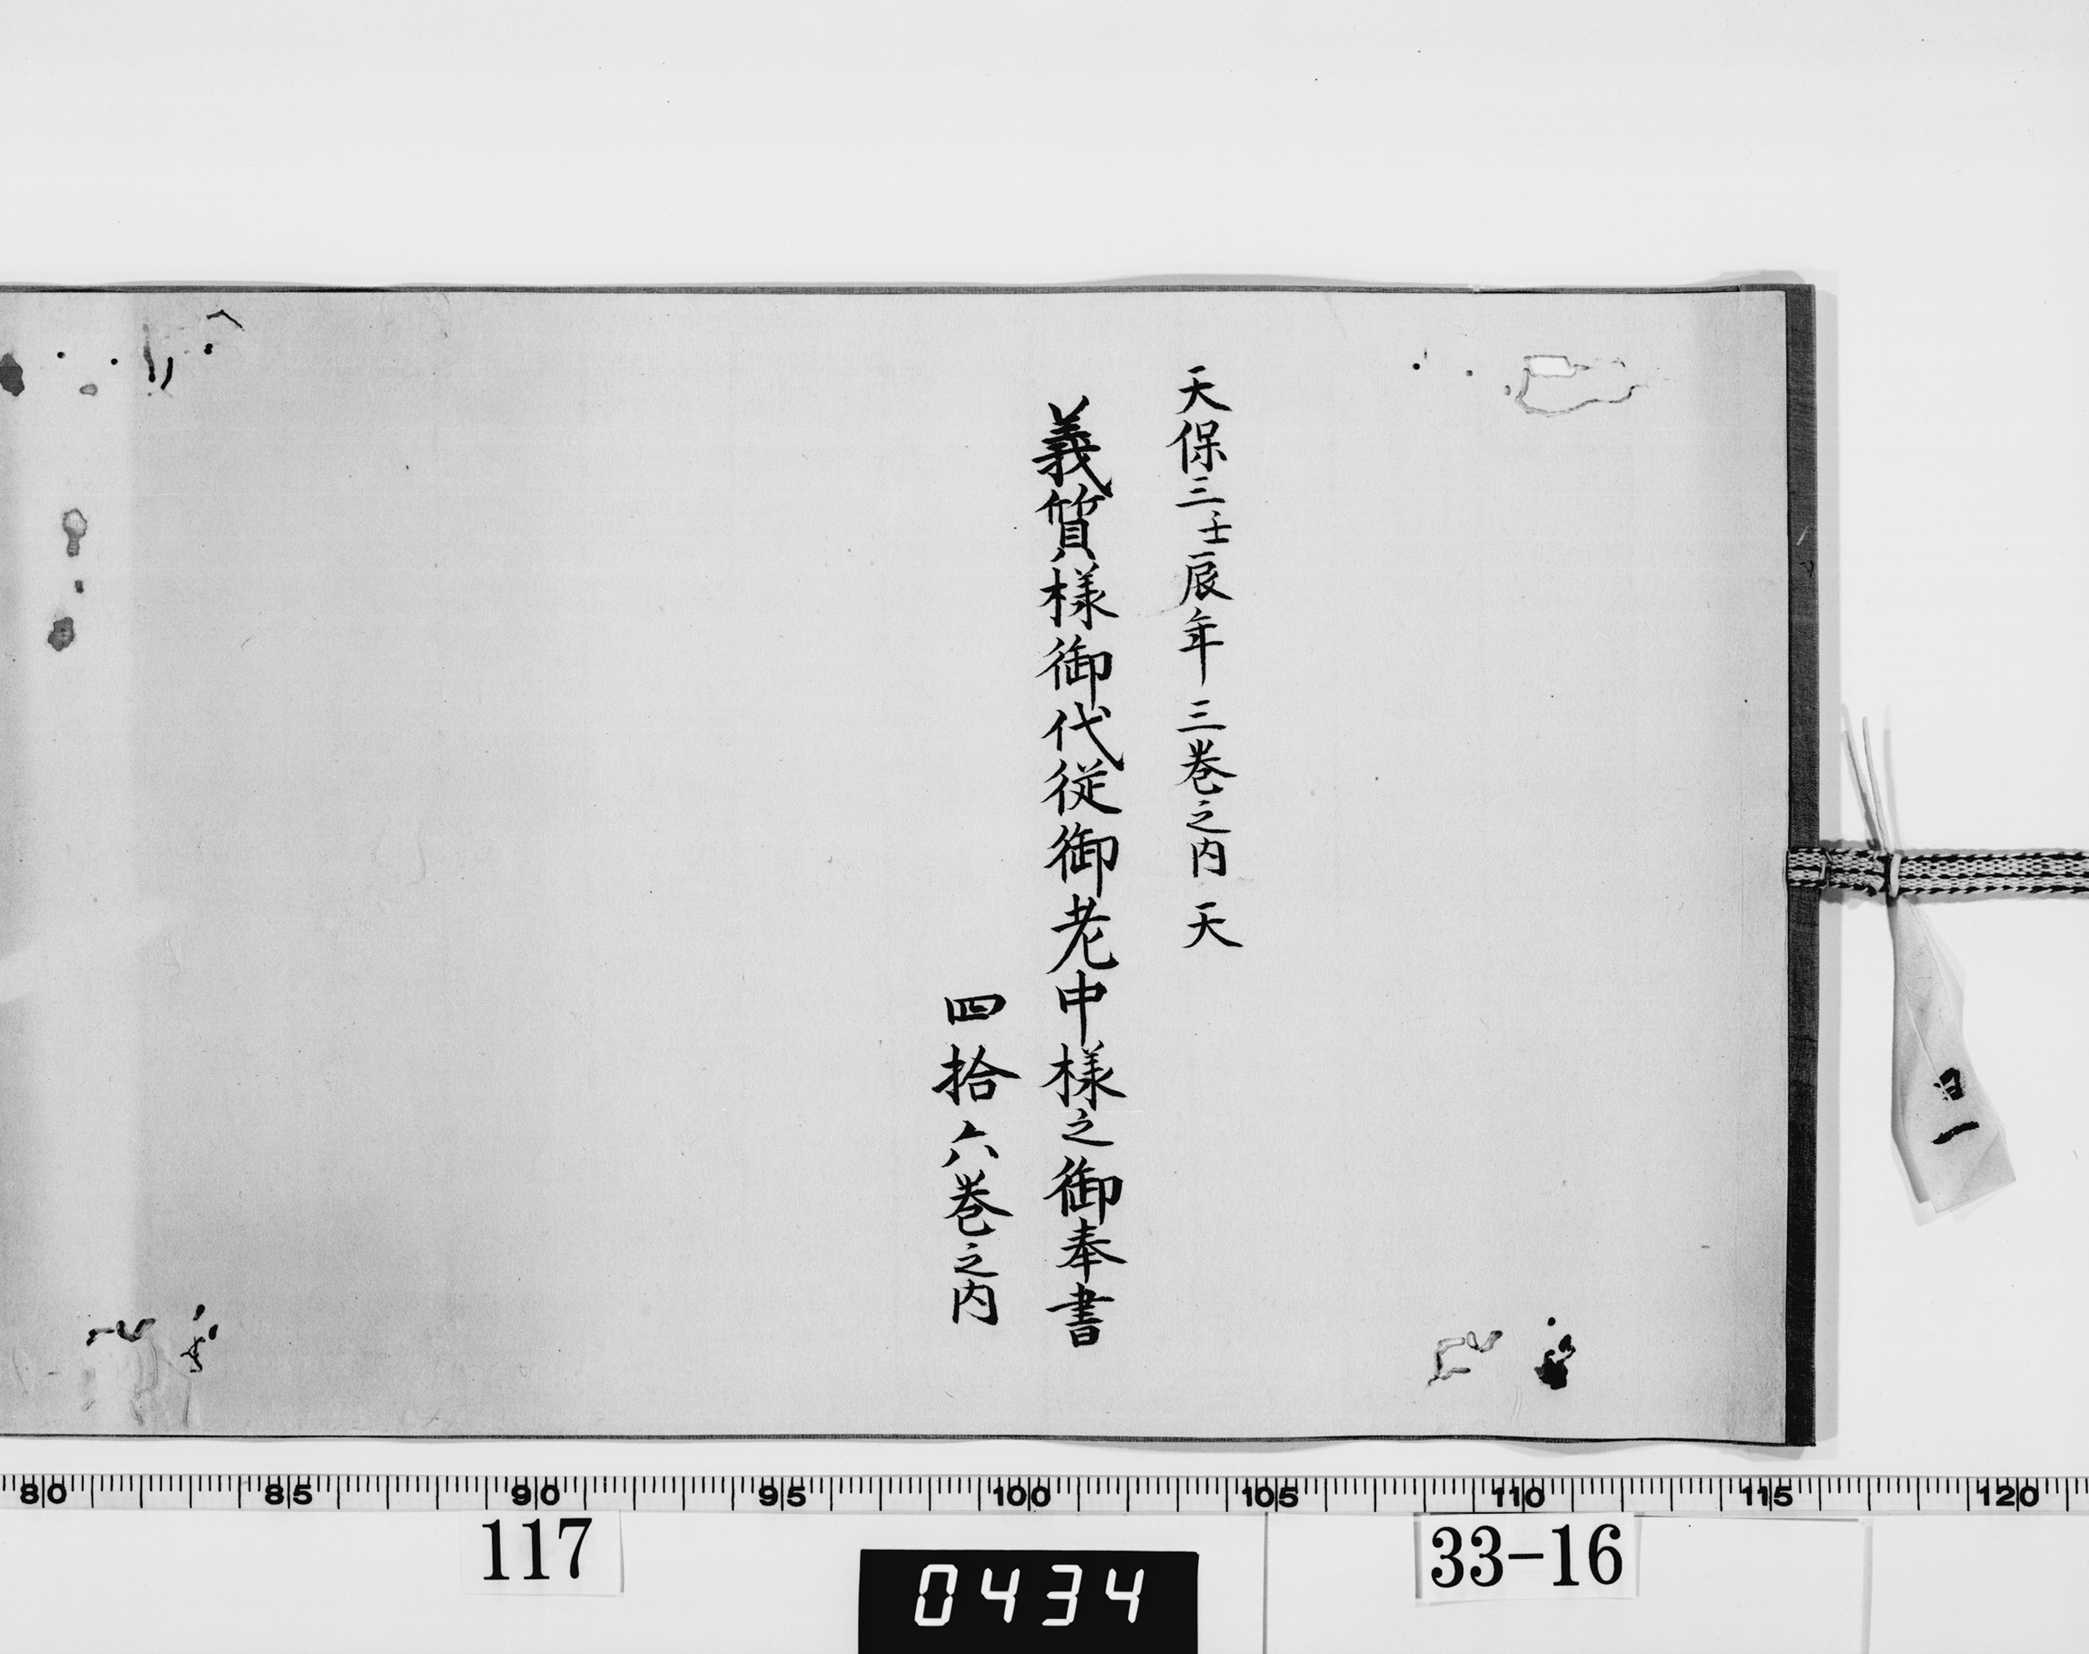 天保三壬辰年 三巻之内 天
義質様御代従御老中様之御奉書
四拾六巻之内
一
80 85 90 95 100 105 110 115 120
117
33-16
0434